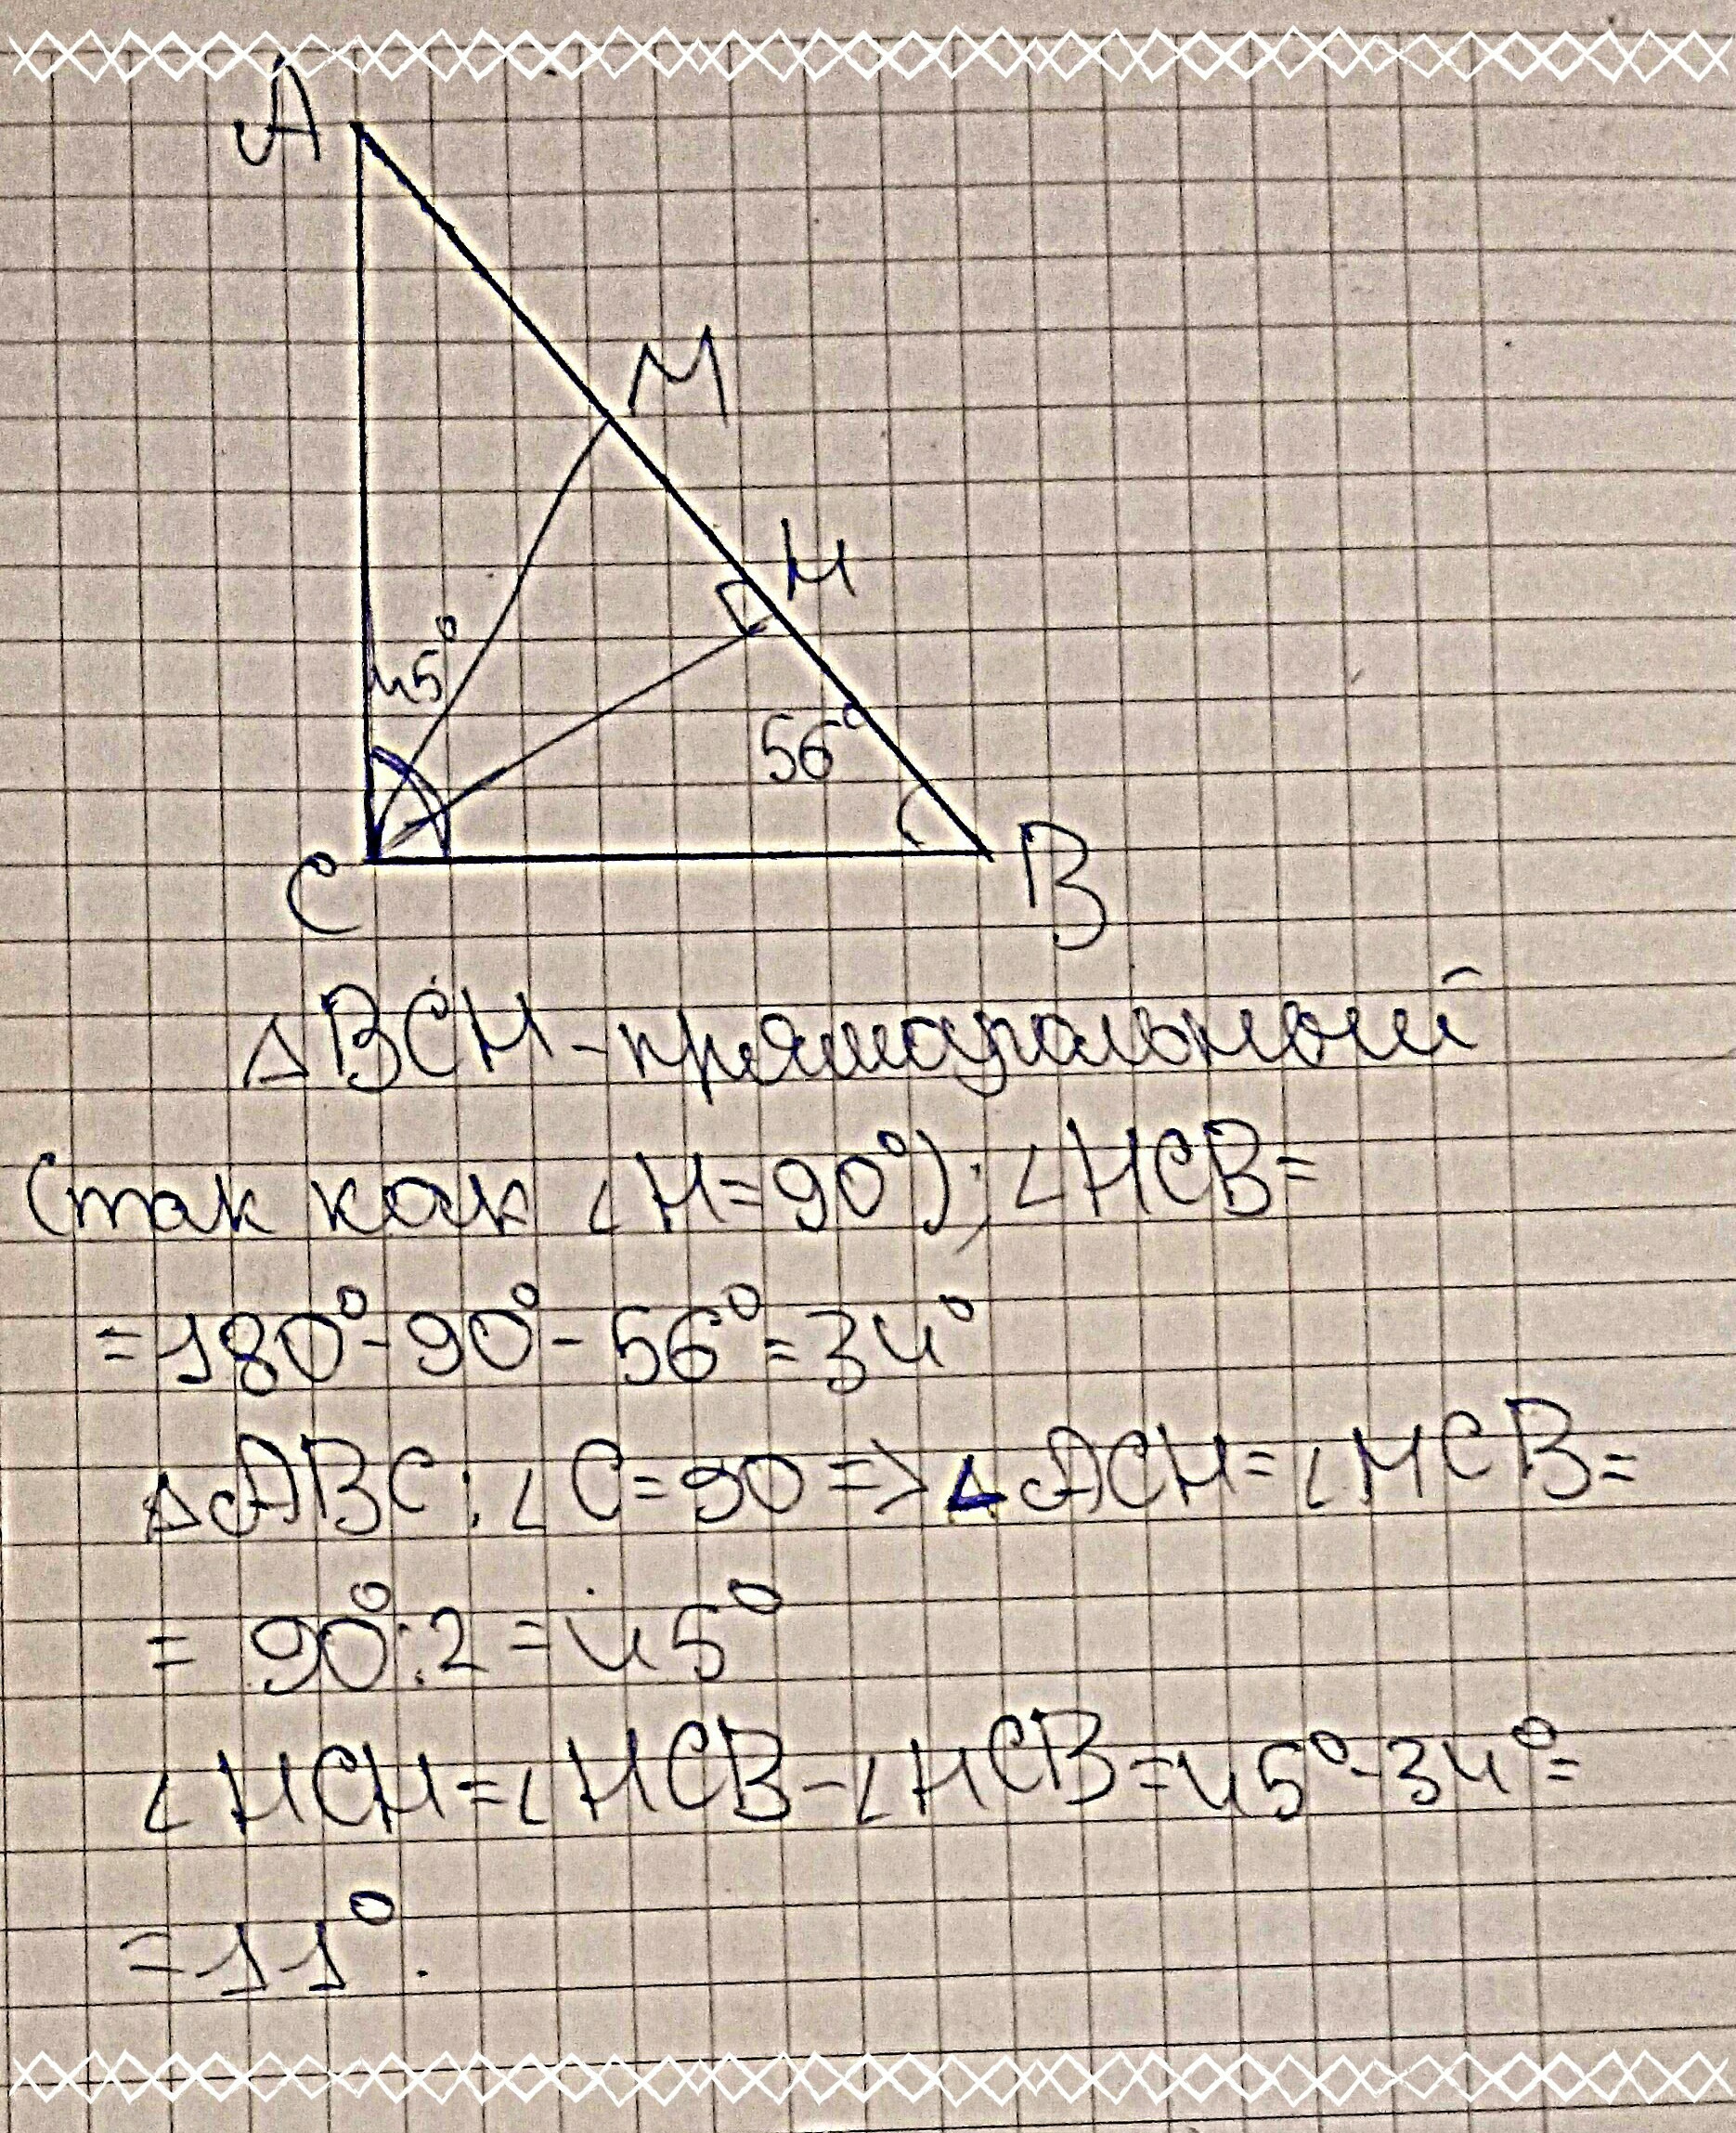 A
M
H
45°
56°
C
B
△BCH - прямоугольный
(так как ∠H=90°); ∠HCB=
=180°-90°-56°=34°
△ABC: ∠C=90=>∠ACM=∠MCB=
= 90°:2=45°
∠MCH=∠MCB-∠HCB=45°-34°=
=11°.